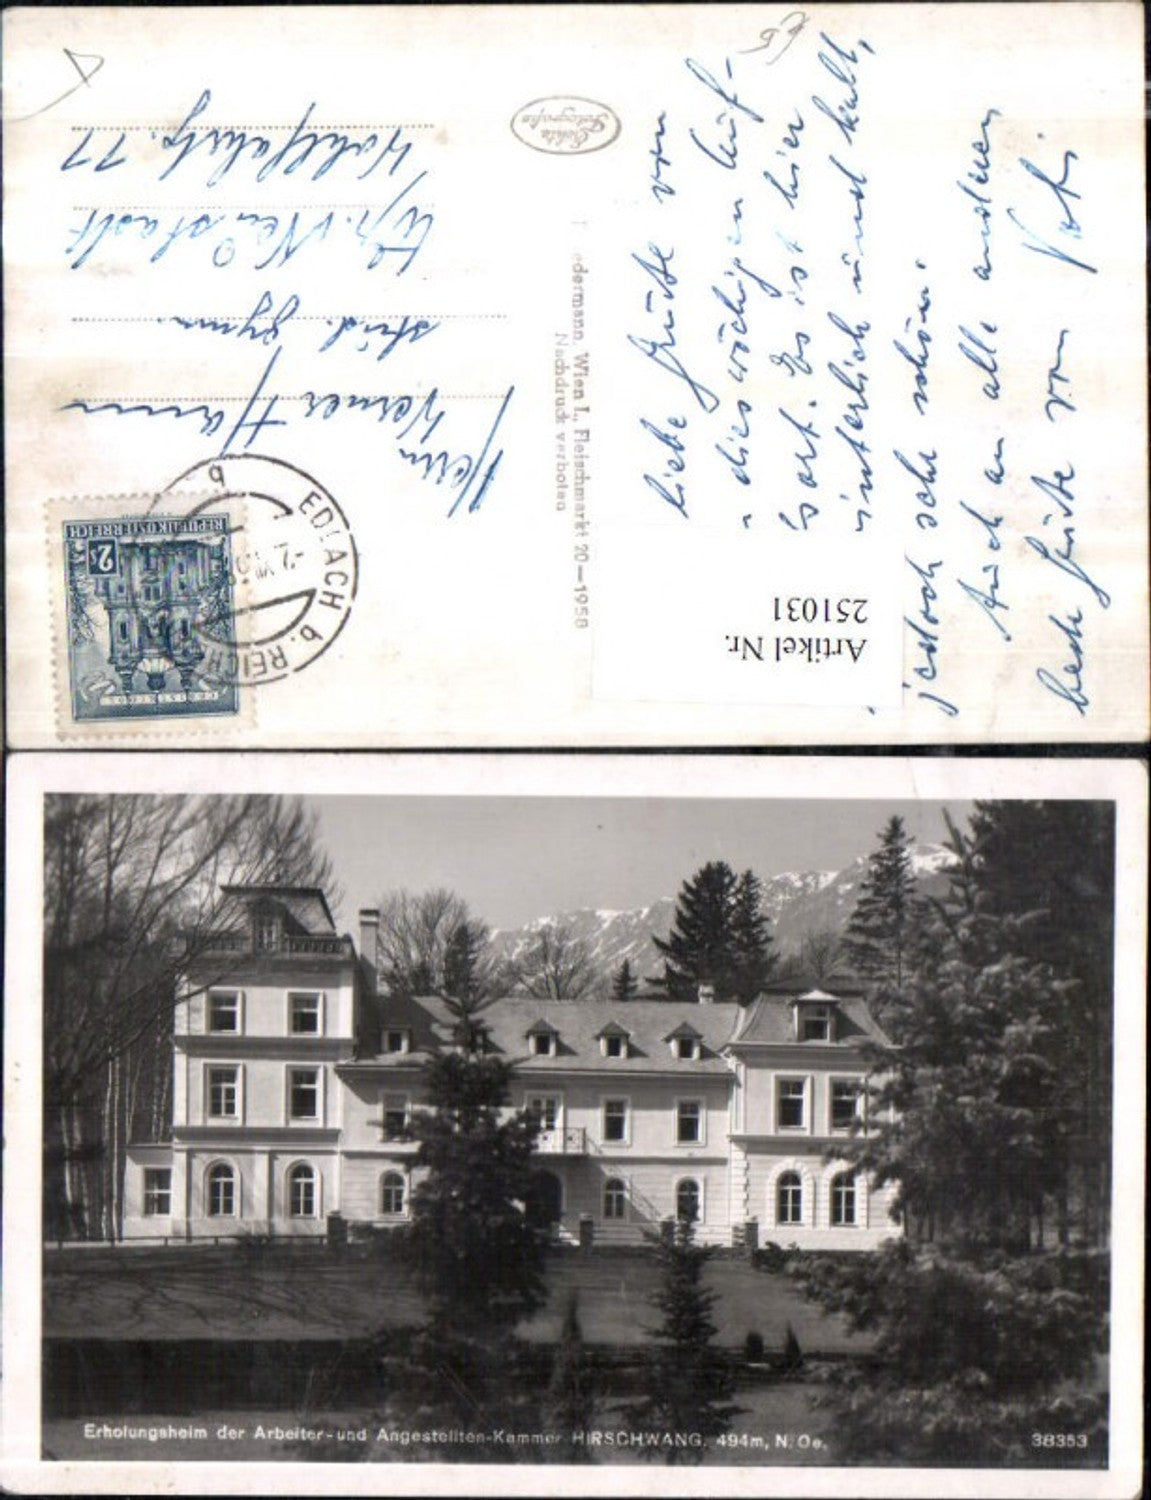 Liebe Grüße von
dieswöchigen Auf-
Es ist hier
winterlich und kalt,
jedoch sehr schön.
Auch an alle anderen
beste Grüße von
Herrn
Werner Hamm
stud. gymn.
Wr. Neustadt
Wohlfahrtg. 77
Echte
Fotografie
edermann, Wien I., Fleischmarkt 20—1950
Nachdruck verboten
REPUBLIK ÖSTERREICH
2S
CHRISTKINDL
EDLACH b. REICH
b
-7. VII
Artikel Nr.
251031
Erholungsheim der Arbeiter- und Angestellten-Kammer HIRSCHWANG. 494m, N. Oe.
38353